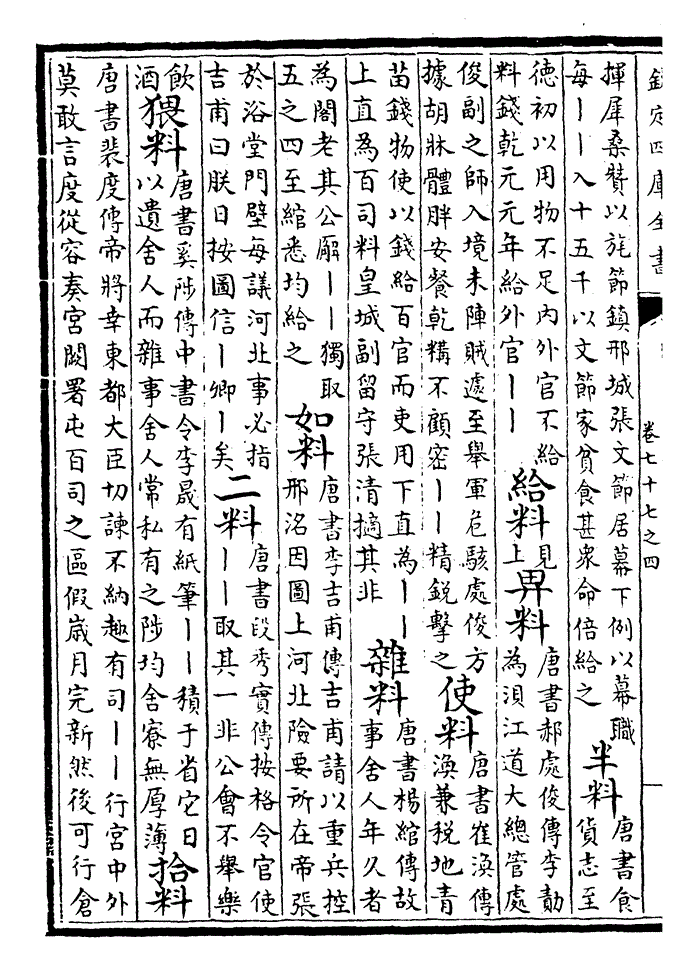 欽定四庫全書
卷七十七之四
揮犀桑贊以旄節鎮邢城張文節居幕下例以幕職
每丨丨入十五千以文節家貧食甚衆命倍給之
半料
唐書食
貨志至
德初以用物不足内外官不給
料錢乾元元年給外官丨丨
給料
見
上
畀料
唐書郝處俊傳李勣
為浿江道大總管處
俊副之師入境未陣賊遽至舉軍危駭處俊方
據胡牀體胖安餐乾糒不顧密丨丨精鋭擊之
使料
唐書崔渙傳
渙兼税地青
苗錢物使以錢給百官而吏用下直為丨丨
上直為百司料皇城副留守張清擿其非
雜料
唐書楊綰傳故
事舍人年久者
為閣老其公廨丨丨獨取
五之四至綰悉均給之
如料
唐書李吉甫傳吉甫請以重兵控
邢洺因圖上河北險要所在帝張
於浴堂門壁每議河北事必指
吉甫曰朕日按圖信丨卿丨矣
二料
唐書段秀實傳按格令官使
丨丨取其一非公會不舉樂
飲
酒
猥料
唐書奚陟傳中書令李晟有紙筆丨丨積于省它日
以遺舍人而雜事舍人常私有之陟均舍寮無厚薄
拾料
唐書裴度傳帝將幸東都大臣切諫不納趣有司丨丨行宮中外
莫敢言度從容奏宮闕署屯百司之區假嵗月完新然後可行倉